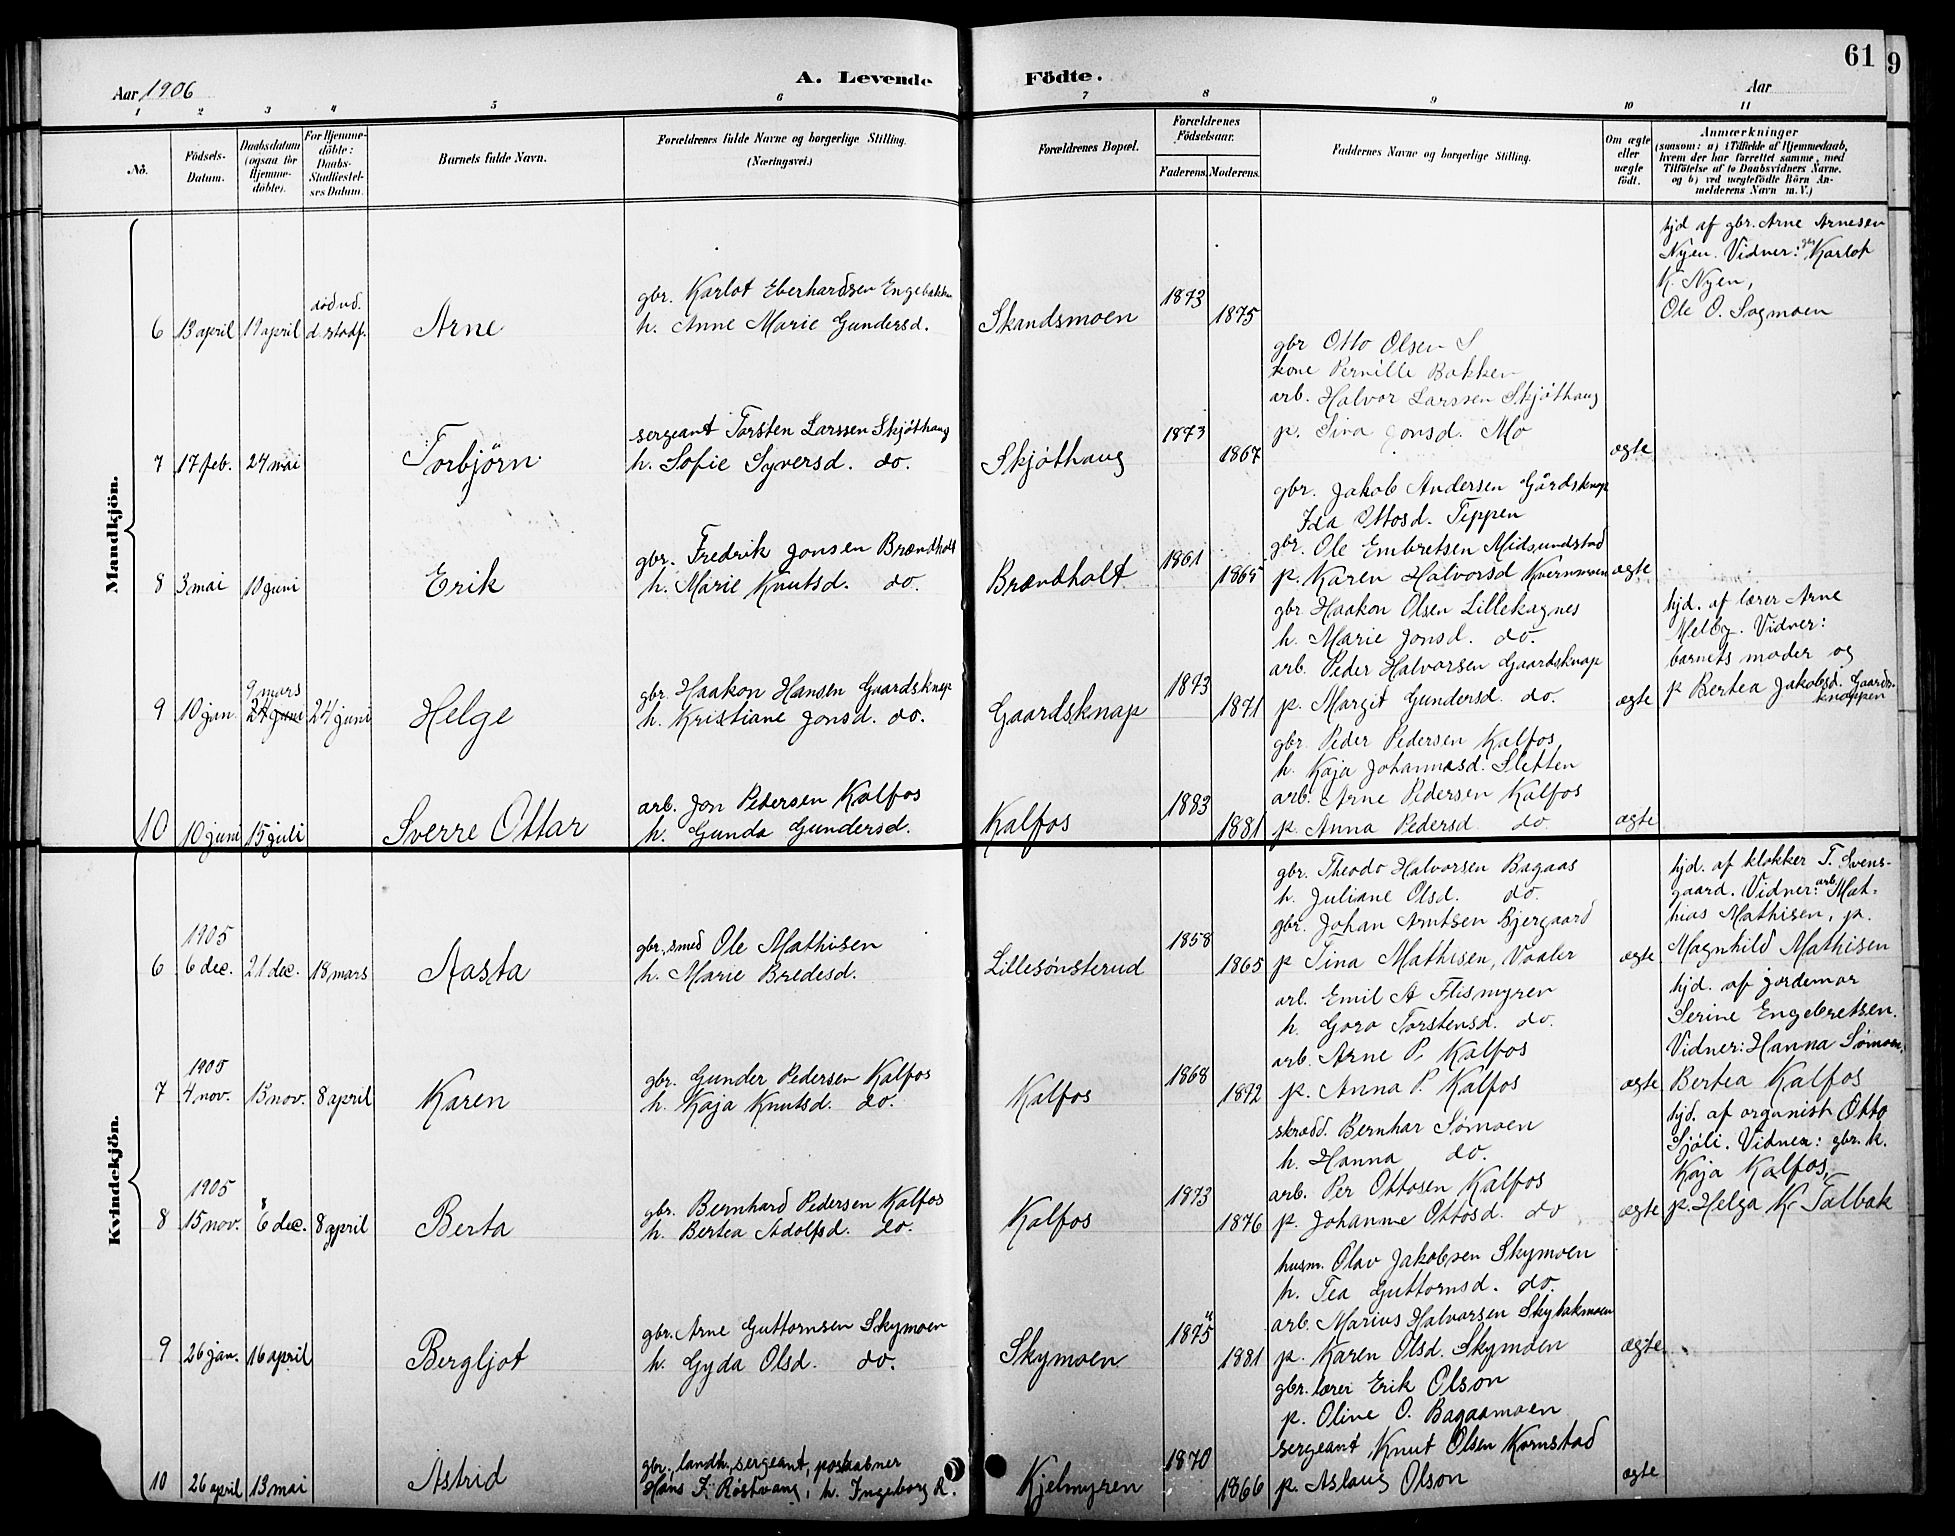 61
9
Aar 1906
A. Levende Födte.
Aar
1 2 3 4 5 6 7 8 9 10 11
No.
Födsels-Datum.
Daabsdatum (ogsaa for Hjemme-döbte).
For Hjemme-döbte: Daabs-Stadfæstel-ses Datum.
Barnets fulde Navn.
Forældrenes fulde Navne og borgerlige Stilling.
(Næringsvei.)
Forældrenes Bopæl.
Forældrenes Födselsaar.
Faderens. Moderens.
Faddernes Navne og borgerlige Stilling.
Om ægte eller uægte födt.
Anmærkninger
(saasom: a) i Tilfælde af Hjemmedaab,
hvem der har forrettet samme, med
Tilföielse af to Daabsvidners Navne.
og b) ved uægtefödte Börn An-
melderens Navn m. V.)
Mandkjön.
6 13 april 19 april død ud. d. stadf. Arne
gbr. Karlot Eberhardsen Engebakken
h. Anne Marie Gundersd.
Skandsmoen 1873 1875
hjd af gbr. Arne Arnesen
Nyen. Vidner: gbr Karlot
K. Nyen,
Ole O. Sagmoen
7 17 feb. 24 mai Torbjörn
sergeant Torsten Larssen Skjøthaug
h. Sofie Syversd. do.
Skjøthaug 1873 1867
gbr Otto Olsen S
kone Pernille Bakken
arb. Halvor Larssen Skjøthaug
p. Sina Jonsd. Mo
ægte
8 3 mai 10 juni Erik
gbr. Fredrik Jonsen Brændholt
h. Marie Knutsd. do.
Brændholt 1861 1865
gbr. Jakob Andersen Gårdsknap
Ida Ottosd. Teppen
gbr. Ole Embretsen Midsundstad
p. Karen Halvorsd Kvernmoen
ægte
9 10 jan. 9 mars 24 juni 24 juni Helge
gbr. Haakon Hansen Gaardsknap
h. Kristiane Jonsd. do.
Gaardsknap 1873 1871
gbr Haakon Olsen Lillekagnes
h. Marie Jonsd. do.
arb. Peder Halvorsen Gaardsknap
p. Margit Gundersd. do.
ægte
hjd. af lærer Arne
Melby. Vidner:
barnets moder og
p Bertea Jakobsd. Gaards-
knappen
10 10 juni 15 juli Sverre Ottar
arb. Jon Pedersen Kalfos
h. Gunda Gundersd.
Kalfos 1883 1881
gbr. Peder Pedersen Kalfos
h. Kaja Johannesd. Sletten
arb. Arne Pedersen Kalfos
p. Anna Pedersd do
ægte
Kvindekjön.
6 1905 6 dec. 21 dec. 18 mars Aasta
gbr., smed Ole Mathisen
h. Marie Bredesd.
Lillesønsterud 1858 1865
gbr. Theodo Halvorsen Bagaas
h. Juliane Olsd. do.
gbr. Johan Arntsen Bjergaard
p Tina Mathisen, Vaaler
ægte
hjd. af klokker T. Svens-
gaard. Vidner: arb. Mat-
hias Mathisen, p.
Magnhild Mathisen
7 1905 4 nov. 13 nov. 8 april Karen
gbr. Gunder Pedersen Kalfos
h. Kaja Knutsd. do.
Kalfos 1868 1872
arb. Emil A Flismyren
h. Goro Torstensd. do.
arb. Arne P. Kalfos
p. Anna P. Kalfos
ægte
hjd. af jordemor
Serine Engebretsen.
Vidner: Hanna Sømoen,
Bertea Kalfos
8 1905 15 nov. 6 dec. 8 april Berta
gbr. Bernhard Pedersen Kalfos
h. Bertea Adolfsd. do.
Kalfos 1873 1876
skrædd. Bernhar Sømoen
h. Hanna do.
arb. Per Ottosen Kalfos
p. Johanne Ottosd. do
ægte
hjd. af organist Otto
Sjøli. Vidner: gbr. k.
Kaja Kalfos,
p. Helga K. Talbak
9 26 jan. 16 april Bergljot
gbr. Arne Guttormsen Skymoen
h. Gyda Olsd. do.
Skymoen 1875 1881
husm. Olav Jakobsen Skymoen
h. Tea Guttormsd. do.
arb. Marius Halvorsen Skybakmoen
p. Karen Olsd. Skymoen
ægte
10 26 april 13 mai Astrid
gbr., landh., sergeant, postaabner
Hans J. Røstvang, h. Ingeborg R.
Kjelmyren 1870 1866
gbr. lærer Erik Olson
p. Oline O. Bagaasmoen
sergeant Knut Olsen Kornstad
p. Aslaug Olson
ægte